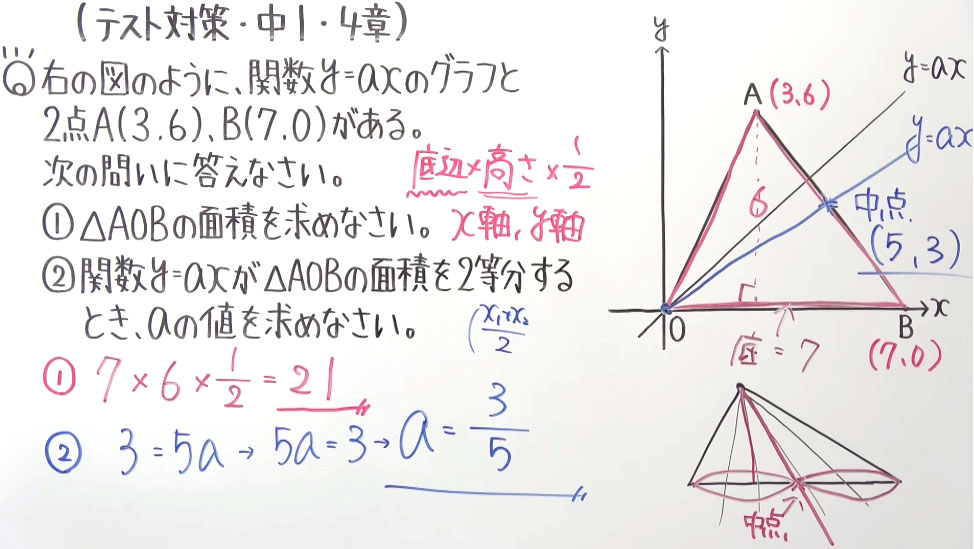 (テスト対策・中1・4章)
Q 右の図のように、関数y=axのグラフと
2点A(3.6)、B(7.0)がある。
次の問いに答えなさい。
底辺×高さ×1/2
①△AOBの面積を求めなさい。
x軸, y軸
②関数y=axが△AOBの面積を2等分する
とき、aの値を求めなさい。
(x₁+x₂/2
① 7×6×1/2=21
② 3=5a→5a=3→a=3/5
y
y=ax
A(3.6)
y=ax
6
中点
(5,3)
O
B
x
底=7
(7.0)
中点